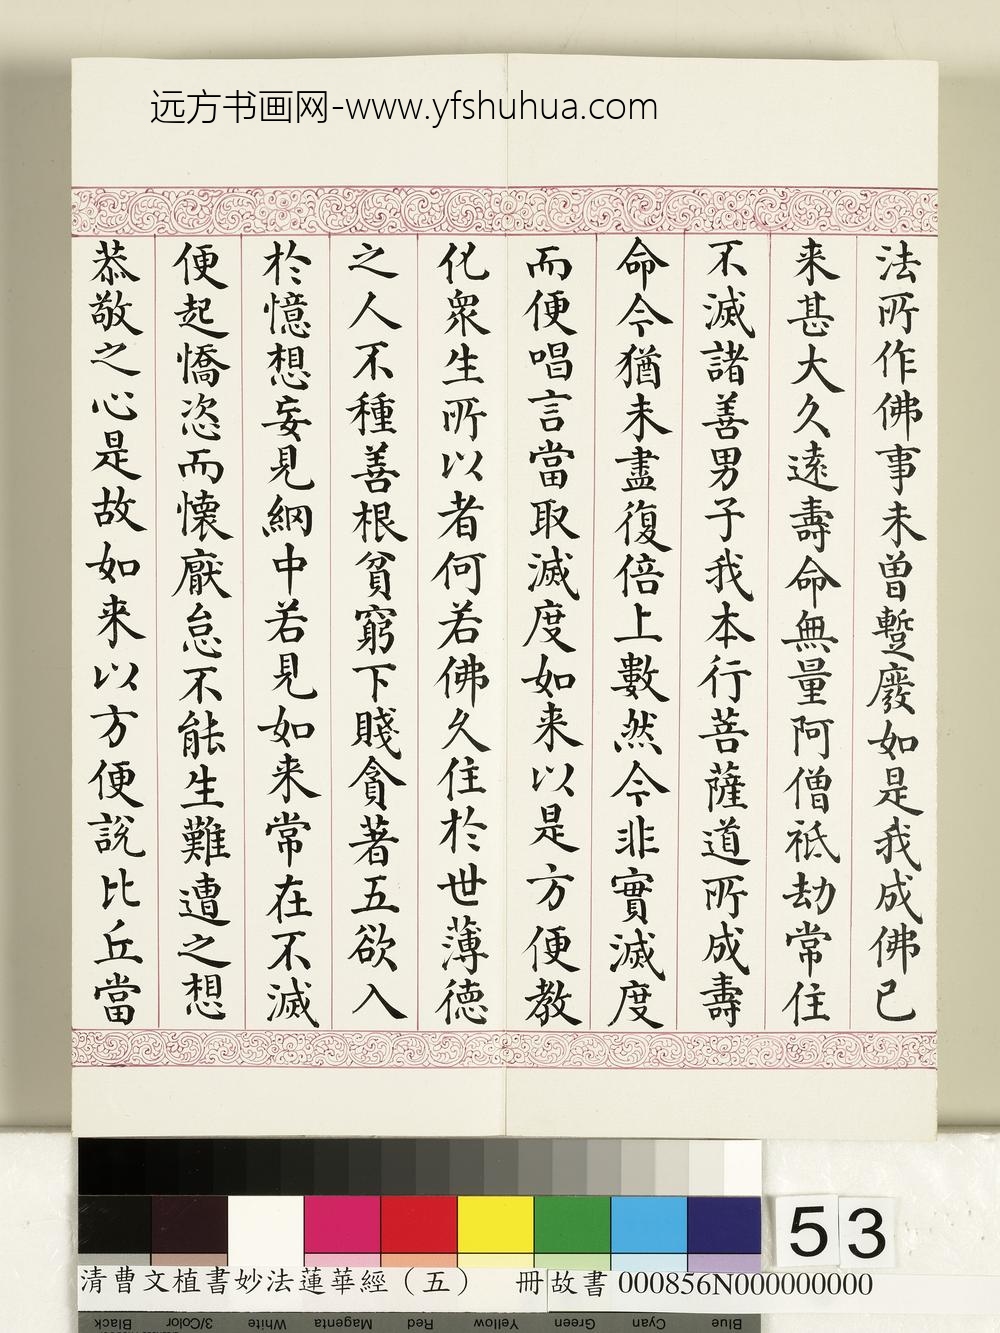 远方书画网-www.yfshuhua.com
法所作佛事未曾蹔廢如是我成佛已
来甚大久遠壽命無量阿僧祇劫常住
不滅諸善男子我本行菩薩道所成壽
命今猶未盡復倍上數然今非實滅度
而便唱言當取滅度如来以是方便教
化衆生所以者何若佛久住於世薄德
之人不種善根貧窮下賤貪著五欲入
於憶想妄見網中若見如来常在不滅
便起憍恣而懷厭怠不能生難遭之想
恭敬之心是故如来以方便說比丘當
53
清曹文植書妙法蓮華經（五） 冊 故書 000856N000000000
Black 3/Color White Magenta Red Yellow Green Cyan Blue